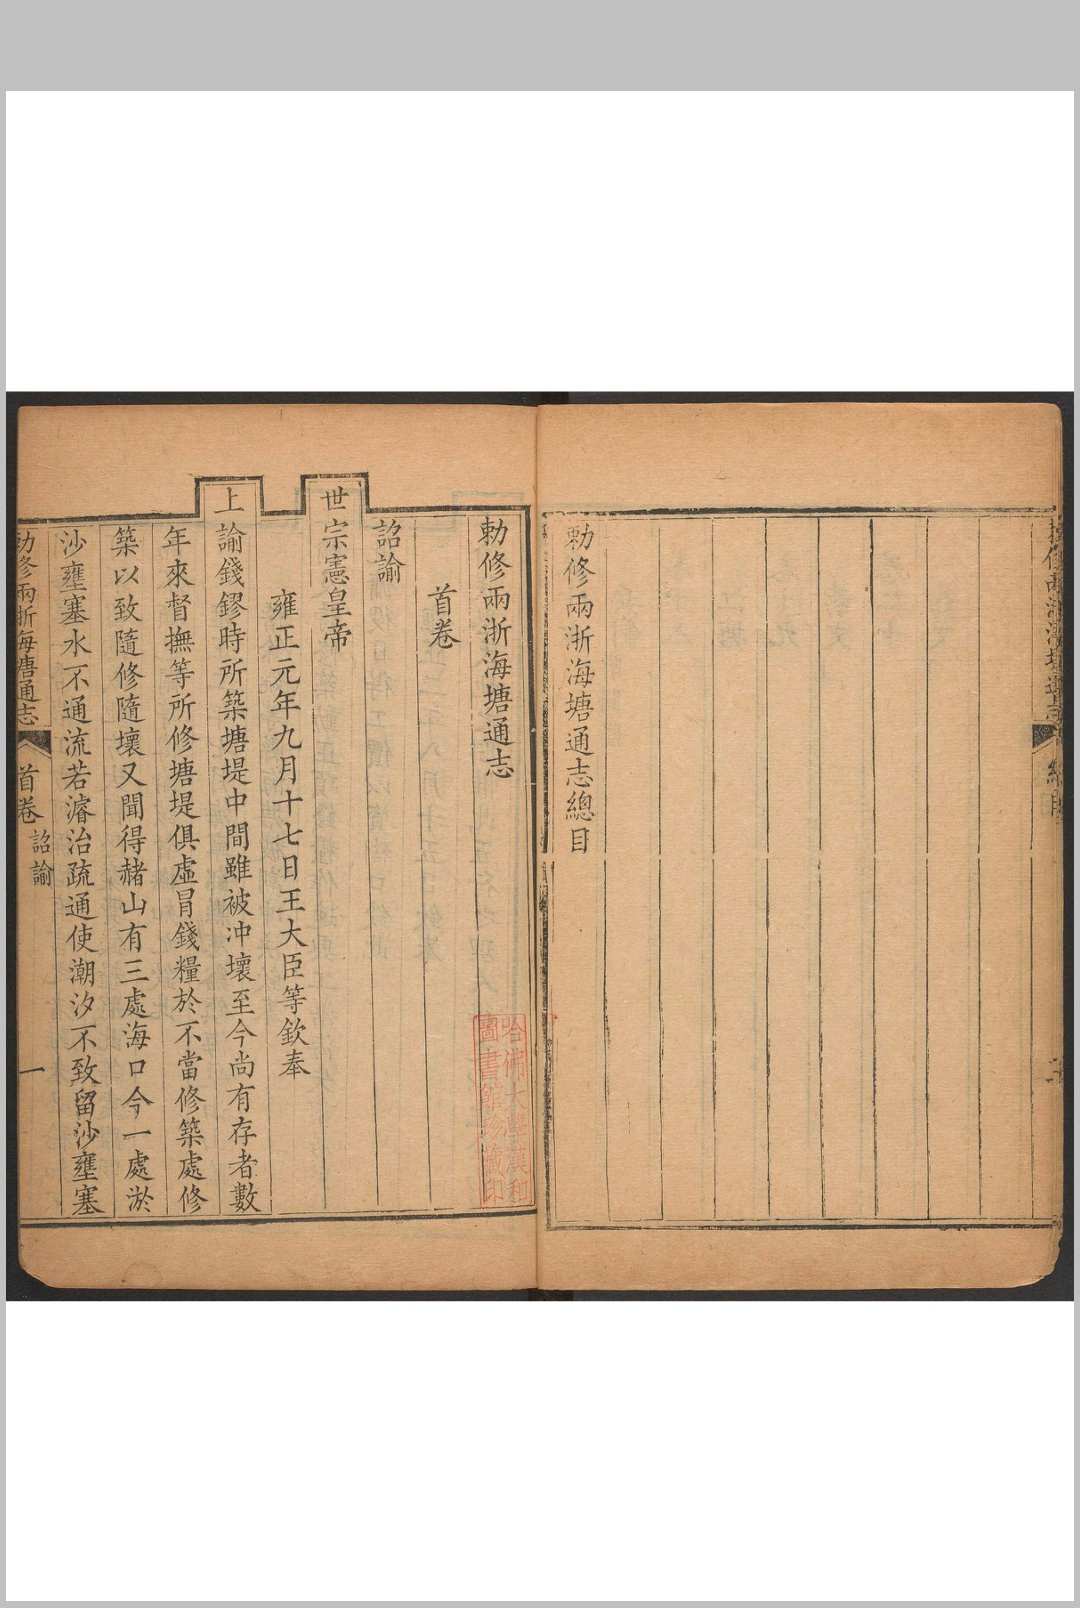 勅修兩浙海塘通志總目
勅修兩浙海塘通志
首卷
詔諭
世宗憲皇帝
雍正元年九月十七日王大臣等欽奉
上諭錢鏐時所築塘堤中間雖被冲壞至今尚有存者數
年來督撫等所修塘堤俱虛冐錢糧於不當修築處修
築以致隨修隨壞又聞得赭山有三處海口今一處淤
沙壅塞水不通流若濬治疏通使潮汐不致留沙壅塞
勅修兩浙海塘通志
首卷
詔諭
一
哈佛大學漢和
圖書館珍藏印